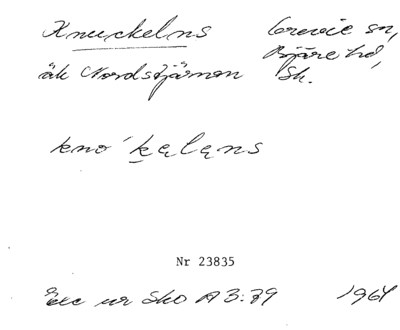 Knuckelns Grevie sn,
Bjäre hd,
äk Nordstjärnan Sk.
kno ́kęlęns
Nr 23835
Exc ur Sko A 3:79 1964